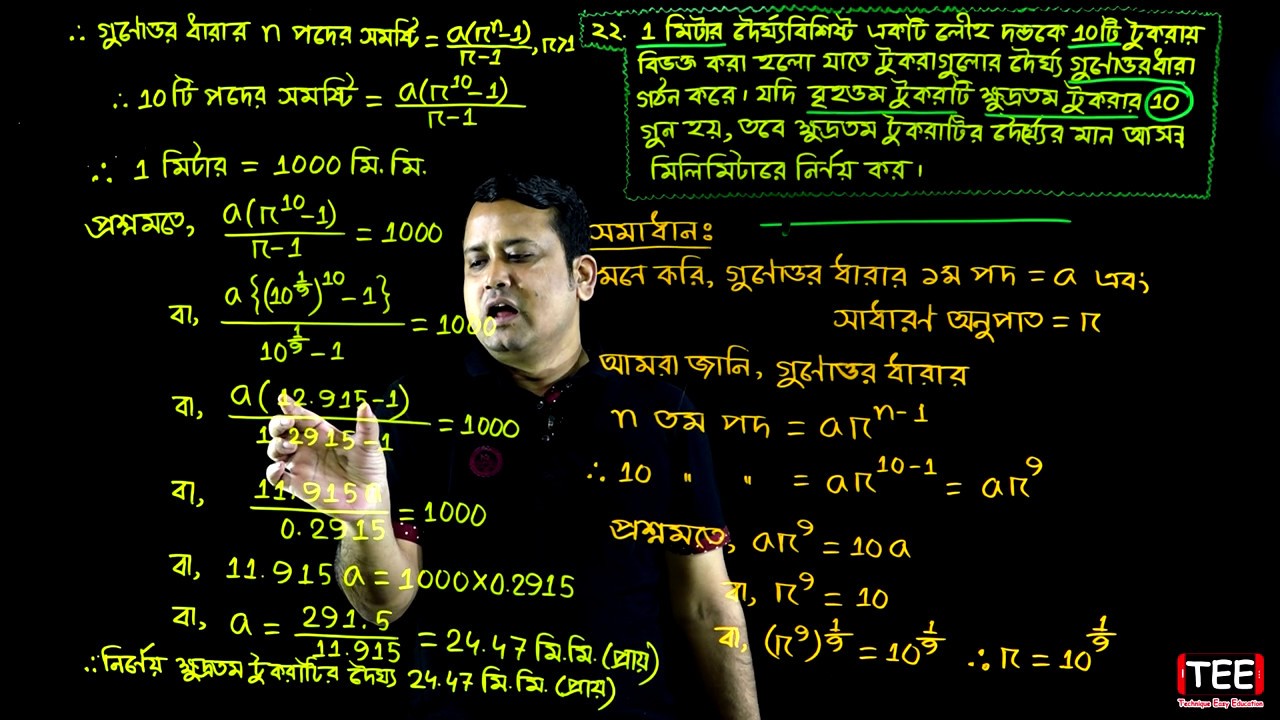 ২২. 1 মিটার দৈর্ঘ্যবিশিষ্ট একটি লৌহ দন্ডকে 10টি টুকরায়
বিভক্ত করা হলো যাতে টুকরাগুলোর দৈর্ঘ্য গুণোত্তর ধারা
গঠন করে। যদি বৃহত্তম টুকরাটি ক্ষুদ্রতম টুকরার 10
গুন হয়, তবে ক্ষুদ্রতম টুকরাটির দৈর্ঘ্যের মান আসন্ন
মিলিমিটারে নির্ণয় কর।
সমাধানঃ
মনে করি, গুণোত্তর ধারার ১ম পদ = a এবং
সাধারণ অনুপাত = r
আমরা জানি, গুণোত্তর ধারার
n তম পদ = ar^{n-1}
∴ 10 " " = ar^{10-1} = ar^9
প্রশ্নমতে, ar^9 = 10a
বা, r^9 = 10
বা, (r^9)^{1/9} = 10^{1/9} ∴ r = 10^{1/9}
∴ গুণোত্তর ধারার n পদের সমষ্টি = a(r^n-1)/(r-1), r>1
∴ 10টি পদের সমষ্টি = a(r^{10}-1)/(r-1)
∴ 1 মিটার = 1000 মি.মি.
প্রশ্নমতে, a(r^{10}-1)/(r-1) = 1000
বা, a{(10^{1/9})^{10}-1}/(10^{1/9}-1) = 1000
বা, a(12.915-1)/(1.2915-1) = 1000
বা, 11.915a/0.2915 = 1000
বা, 11.915a = 1000×0.2915
বা, a = 291.5/11.915 = 24.47 মি.মি. (প্রায়)
∴ নির্ণেয় ক্ষুদ্রতম টুকরাটির দৈর্ঘ্য 24.47 মি.মি. (প্রায়)
TEE
Technique Easy Education